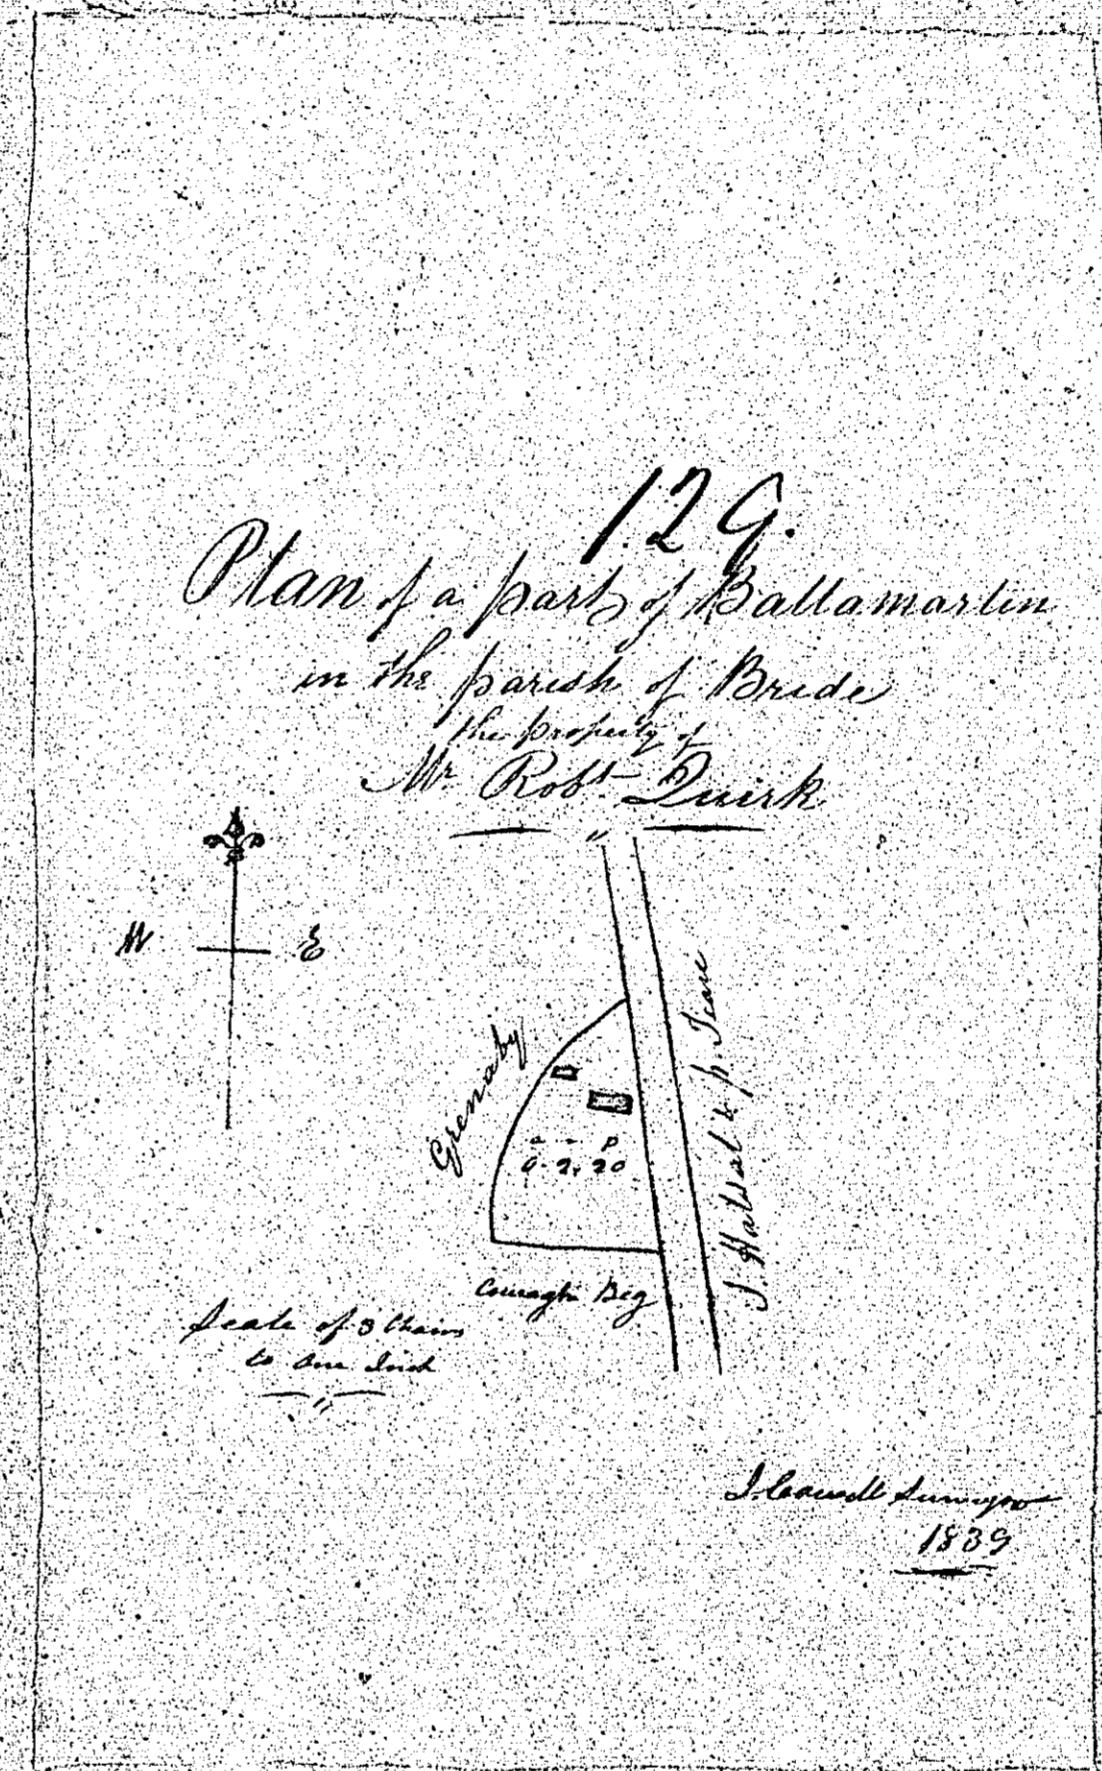 12 G.
Plan of a part of Ballamartin
in the parish of Bride
the property of
Mr. Robt. Quirk
W E
Grenaby
a r p
0. 2. 20
J. & P. Teare
Beg
Scale of 3 Chains
to One Inch
Surveyor
1839